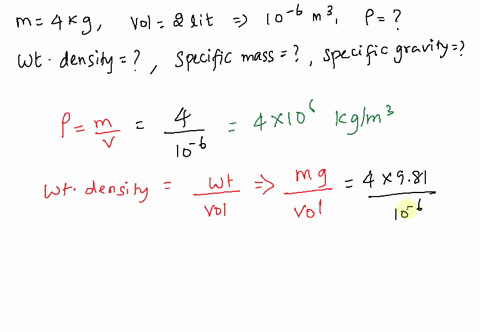 m = 4 kg, vol = 2 lit => 10⁻⁶ m³, ρ = ?
wt. density = ?, specific mass = ?, specific gravity = ?
ρ = m/v = 4/10⁻⁶ = 4×10⁶ kg/m³
wt. density = wt/vol => mg/vol = 4 × 9.81/10⁻⁶